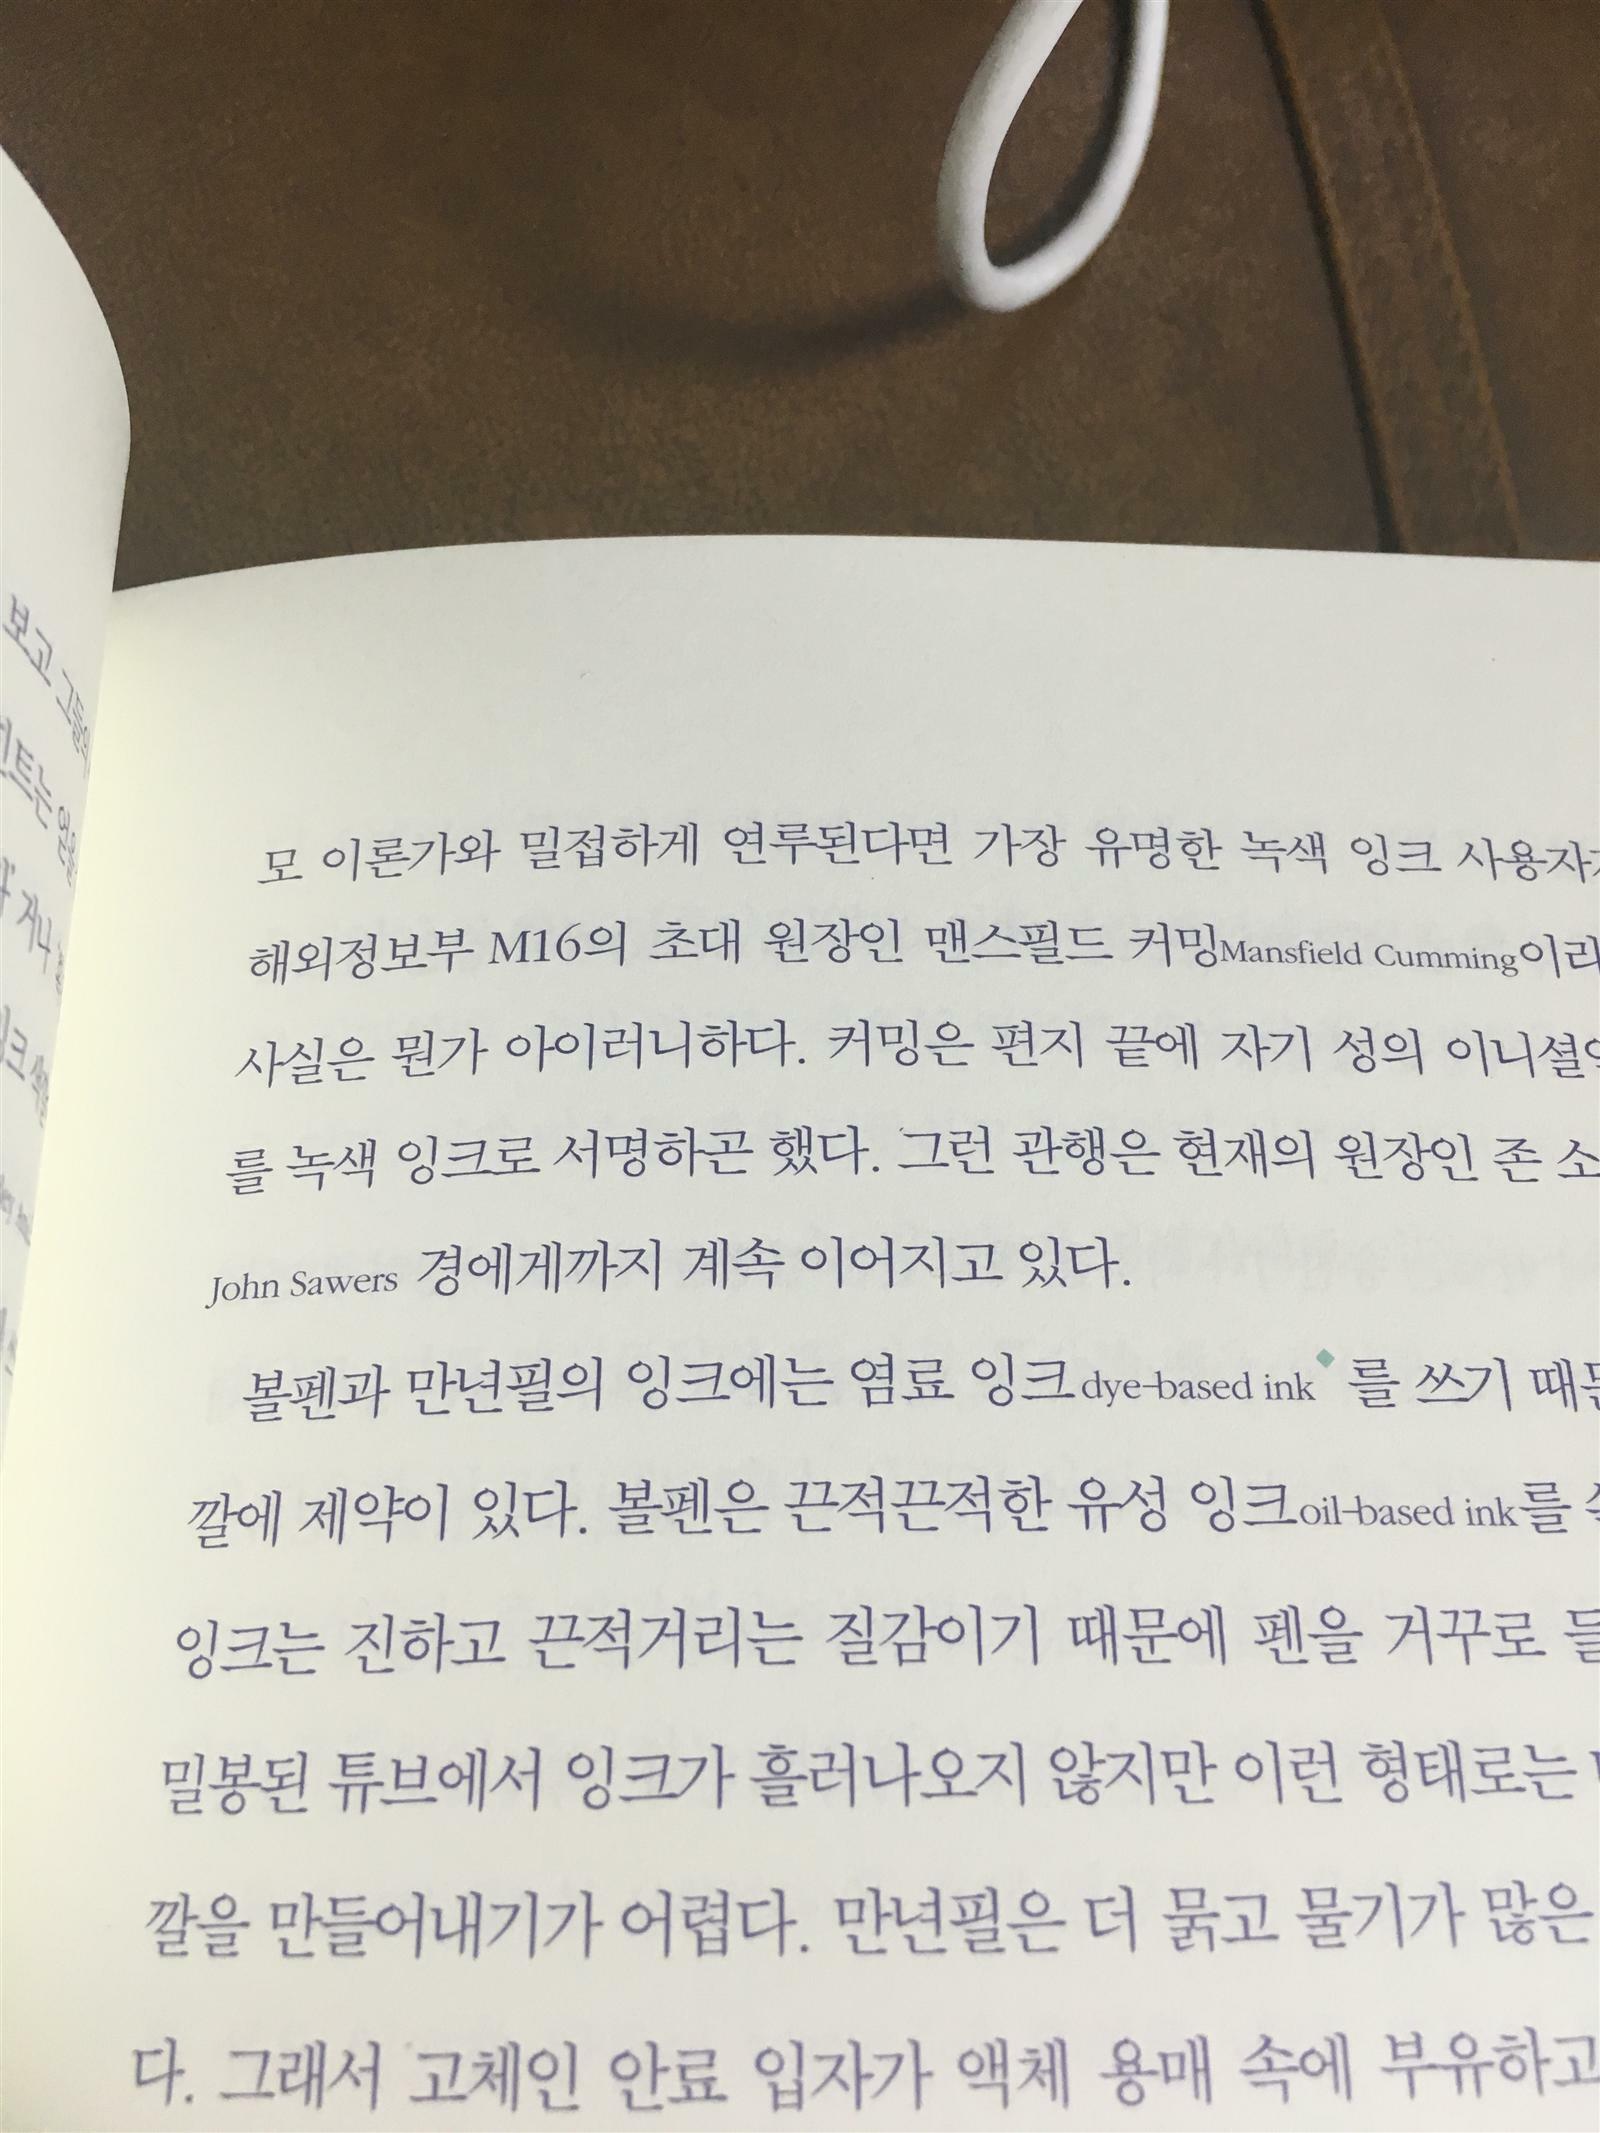 보고 그들의
모 이론가와 밀접하게 연루된다면 가장 유명한 녹색 잉크 사용자가
해외정보부 M16의 초대 원장인 맨스필드 커밍Mansfield Cumming이라
사실은 뭔가 아이러니하다. 커밍은 편지 끝에 자기 성의 이니셜인
를 녹색 잉크로 서명하곤 했다. 그런 관행은 현재의 원장인 존 소
John Sawers 경에게까지 계속 이어지고 있다.
볼펜과 만년필의 잉크에는 염료 잉크dye-based ink◆를 쓰기 때문
깔에 제약이 있다. 볼펜은 끈적끈적한 유성 잉크oil-based ink를
잉크는 진하고 끈적거리는 질감이기 때문에 펜을 거꾸로 들
밀봉된 튜브에서 잉크가 흘러나오지 않지만 이런 형태로는
깔을 만들어내기가 어렵다. 만년필은 더 묽고 물기가 많은
다. 그래서 고체인 안료 입자가 액체 용매 속에 부유하고